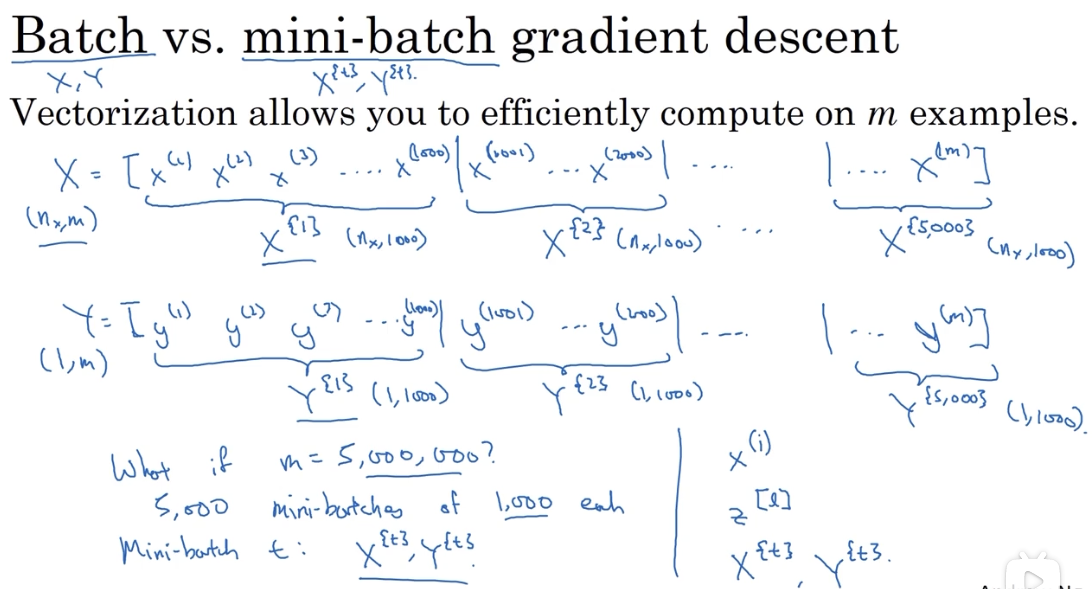 Batch vs. mini-batch gradient descent
X, Y X^{t}, Y^{t}.
Vectorization allows you to efficiently compute on m examples.
X = [x^(1) x^(2) x^(3) .... x^(1000) | x^(1001) ... x^(2000) | .... | .... x^(m)]
(n_x, m) X^{1} (n_x, 1000) X^{2} (n_x, 1000) .... X^{5,000} (n_x, 1000)
Y = [y^(1) y^(2) y^(3) ... y^(1000) | y^(1001) ... y^(2000) | .... | ... y^(m)]
(1, m) Y^{1} (1, 1000) Y^{2} (1, 1000) Y^{5,000} (1, 1000).
What if m = 5,000,000?
5,000 mini-batches of 1,000 each
Mini-batch t: X^{t}, Y^{t}.
x^(i)
z^[l]
X^{t}, Y^{t}.